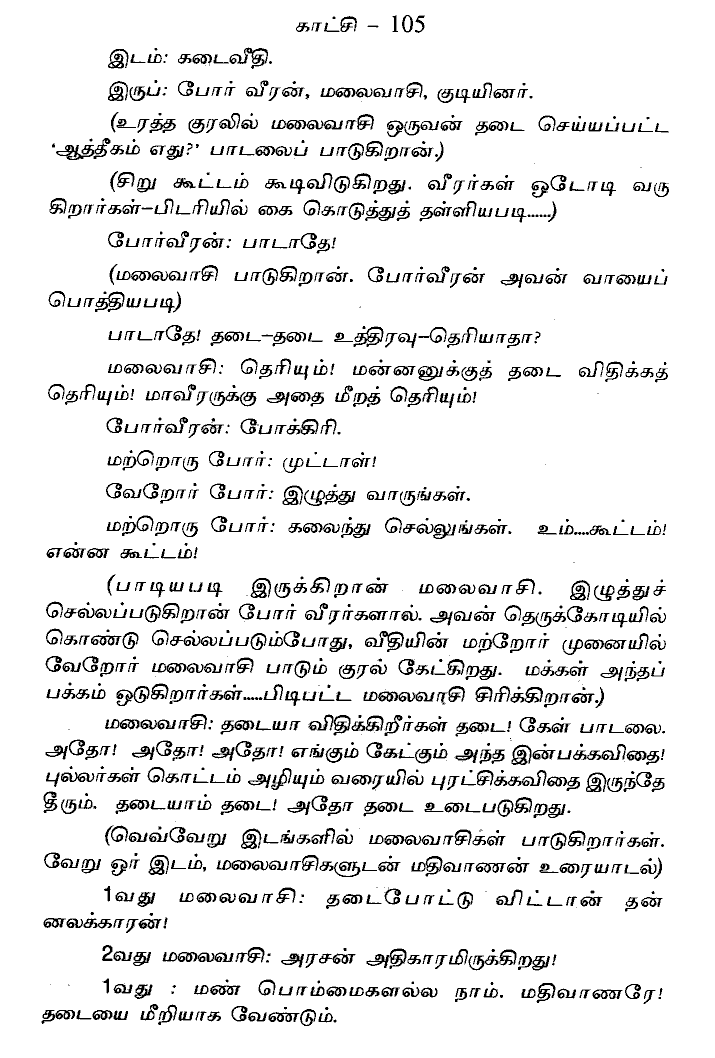 காட்சி – 105
இடம்: கடைவீதி.
இருப்: போர் வீரன், மலைவாசி, குடியினர்.
(உரத்த குரலில் மலைவாசி ஒருவன் தடை செய்யப்பட்ட
‘ஆத்தீகம் எது?’ பாடலைப் பாடுகிறான்.)
(சிறு கூட்டம் கூடிவிடுகிறது. வீரர்கள் ஒடோடி வரு
கிறார்கள்–பிடரியில் கை கொடுத்துத் தள்ளியபடி......)
போர்வீரன்: பாடாதே!
(மலைவாசி பாடுகிறான். போர்வீரன் அவன் வாயைப்
பொத்தியபடி)
பாடாதே! தடை–தடை உத்திரவு–தெரியாதா?
மலைவாசி: தெரியும்! மன்னனுக்குத் தடை விதிக்கத்
தெரியும்! மாவீரருக்கு அதை மீறத் தெரியும்!
போர்வீரன்: போக்கிரி.
மற்றொரு போர்: முட்டாள்!
வேறோர் போர்: இழுத்து வாருங்கள்.
மற்றொரு போர்: கலைந்து செல்லுங்கள். உம்....கூட்டம்!
என்ன கூட்டம்!
(பாடியபடி இருக்கிறான் மலைவாசி. இழுத்துச்
செல்லப்படுகிறான் போர் வீரர்களால். அவன் தெருக்கோடியில்
கொண்டு செல்லப்படும்போது, வீதியின் மற்றோர் முனையில்
வேறோர் மலைவாசி பாடும் குரல் கேட்கிறது. மக்கள் அந்தப்
பக்கம் ஒடுகிறார்கள்.....பிடிபட்ட மலைவாசி சிரிக்கிறான்.)
மலைவாசி: தடையா விதிக்கிறீர்கள் தடை! கேள் பாடலை.
அதோ! அதோ! அதோ! எங்கும் கேட்கும் அந்த இன்பக்கவிதை!
புல்லர்கள் கொட்டம் அழியும் வரையில் புரட்சிக்கவிதை இருந்தே
தீரும். தடையாம் தடை! அதோ தடை உடைபடுகிறது.
(வெவ்வேறு இடங்களில் மலைவாசிகள் பாடுகிறார்கள்.
வேறு ஒர் இடம், மலைவாசிகளுடன் மதிவாணன் உரையாடல்)
1வது மலைவாசி: தடைபோட்டு விட்டான் தன்
னலக்காரன்!
2வது மலைவாசி: அரசன் அதிகாரமிருக்கிறது!
1வது : மண் பொம்மைகளல்ல நாம். மதிவாணரே!
தடையை மீறியாக வேண்டும்.